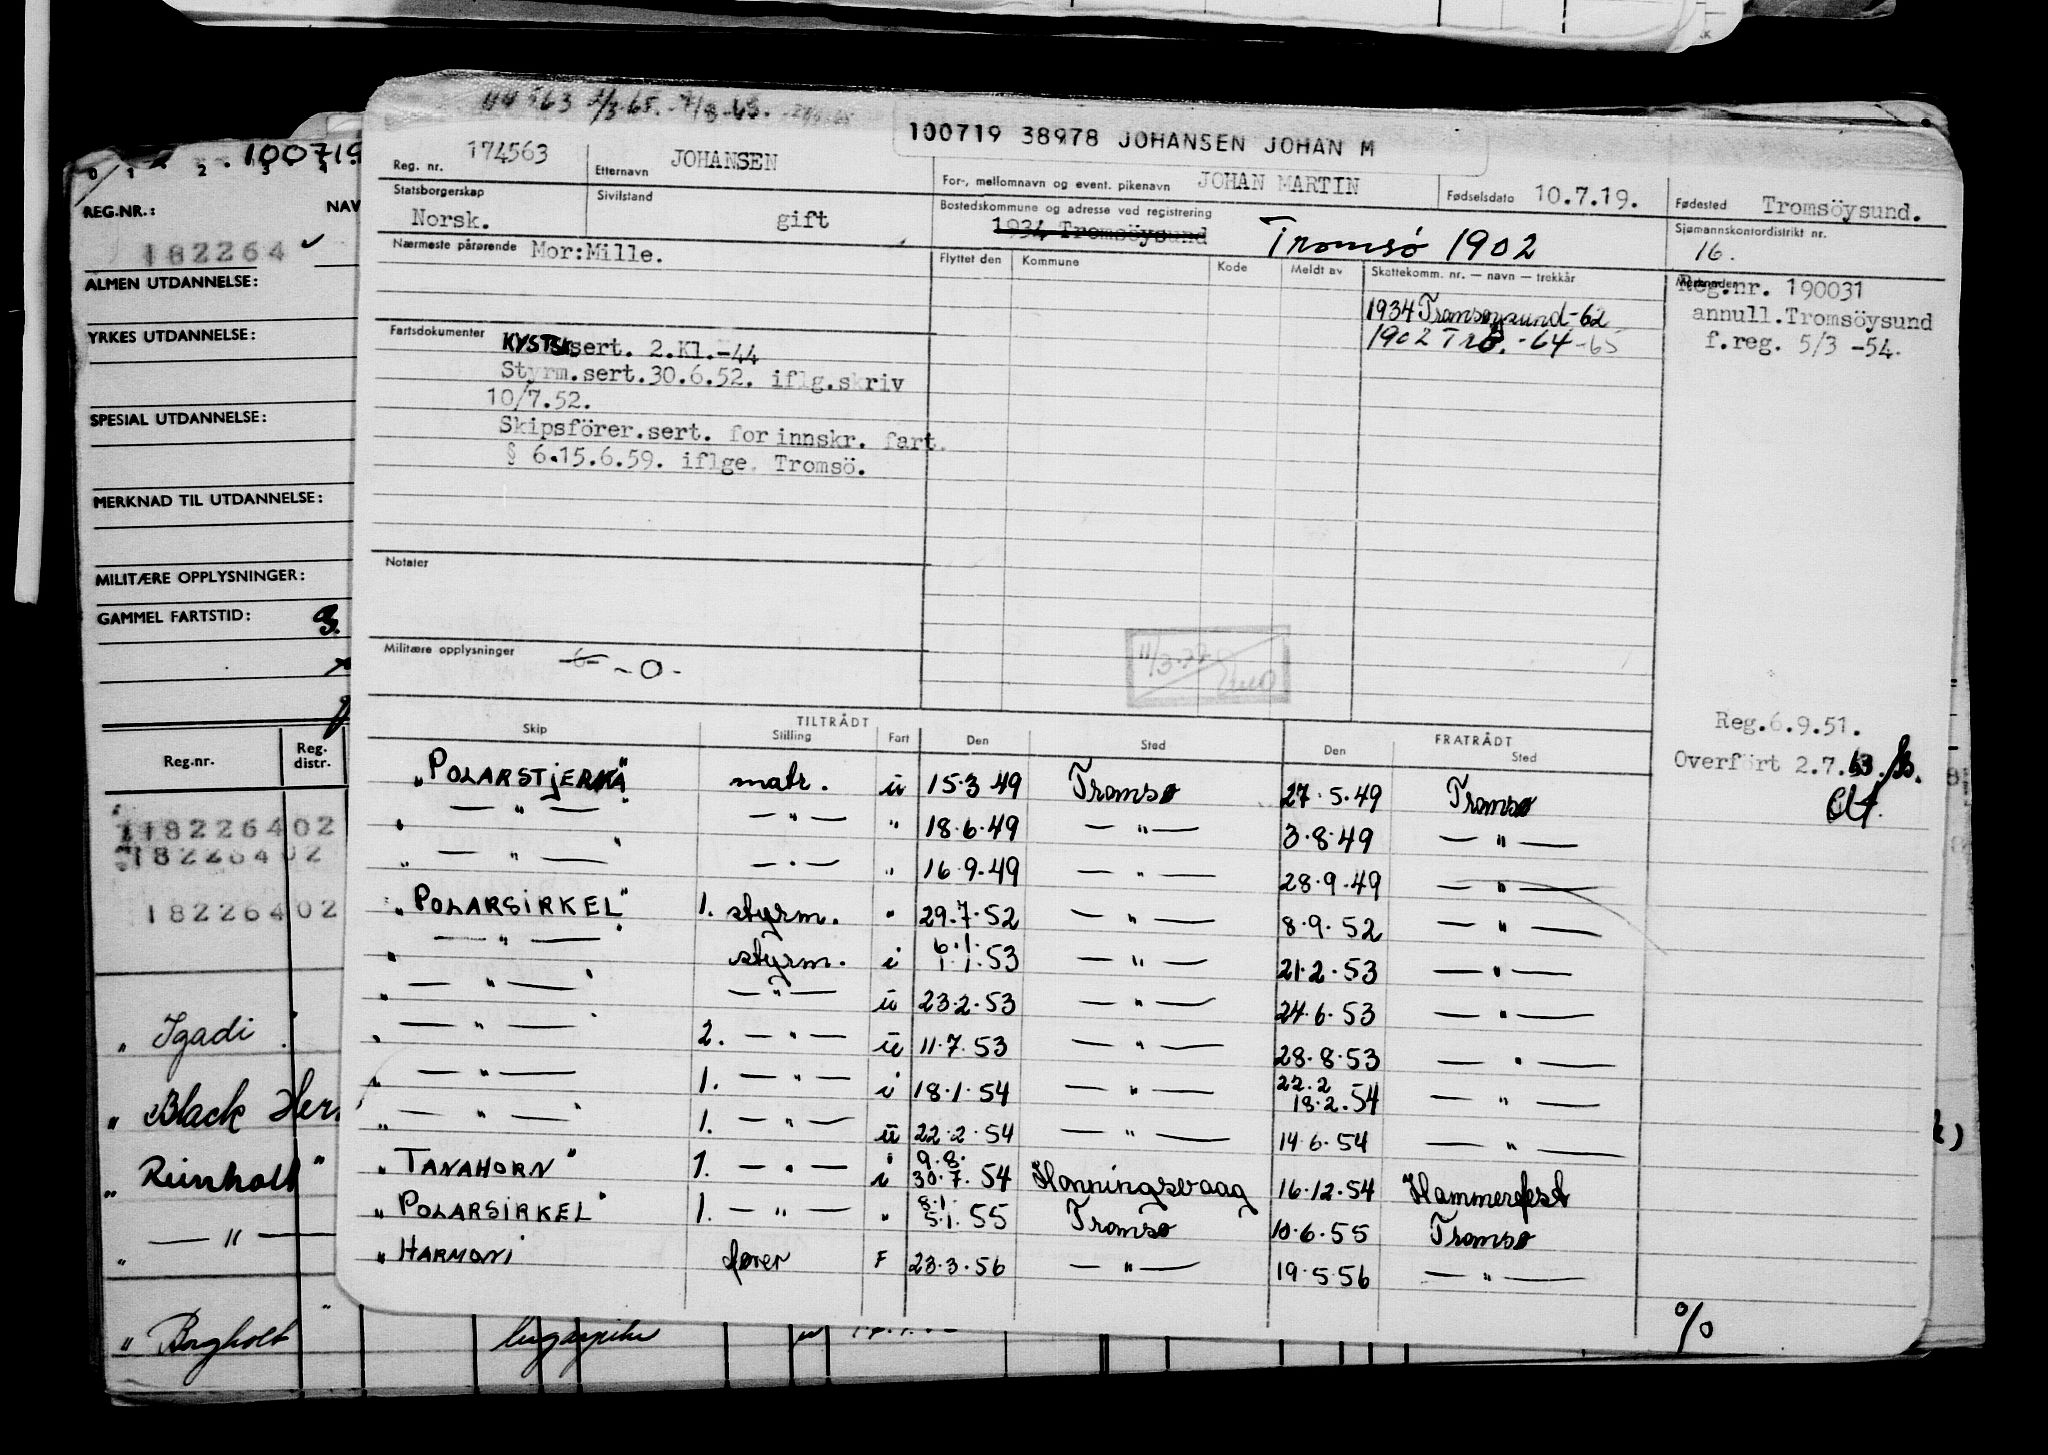 100719 38978 JOHANSEN JOHAN M
Reg. nr. 174563 Etternavn JOHANSEN For-, mellomnavn og event. pikenavn JOHAN MARTIN Fødselsdato 10.7.19. Fødested Tromsöysund.
Statsborgerskap Norsk. Sivilstand gift Bostedskommune og adresse ved registrering 1934 Tromsöysund Tromsø 1902 Sjømannskontordistrikt nr. 16.
Nærmeste pårørende Mor:Mille. Flyttet den Kommune Kode Meldt av Skattekomm. nr. — navn — trekkår Merknader
Reg.nr. 190031
annull.Tromsöysund
f.reg. 5/3 -54.
1934 Tromsøysund-62
1902 Trø. -64 -65
Fartsdokumenter KYSTSK.sert. 2.Kl.-44
Styrm.sert.30.6.52. iflg.skriv
10/7.52.
Skipsförer.sert. for innskr. fart.
§ 6.15.6.59. iflge. Tromsö.
Notater
Militære opplysninger -6- -0-
Reg.6.9.51.
Overfört 2.7.63.
TILTRÅDT FRATRÅDT
Skip Stilling Fart Den Sted Den Sted
"POLARSTJERNA" matr. u 15.3 49 Tromsø 27.5.49 Tromsø
" — " — " — " — " 18.6.49 — " — 3.8.49 — " —
" — " — " — " — " 16.9.49 — " — 28.9.49 — " —
"POLARSIRKEL" 1. styrm. " 29.7.52 — " — 8.9.52 — " —
" — " — " styrm. i 6.1. 1.1.53 — " — 21.2.53 — " —
" — " — " — " — u 23.2.53 — " — 24.6.53 — " —
" — " — " 2. — " — u 11.7.53 — " — 28.8.53 — " —
" — " — 1. — " — i 18.1.54 — " — 22.2 18.2.54 — " —
" — " — " 1. — " — u 22.2.54 — " — 14.6.54 — " —
"TANAHORN" 1. — " — i 9.8. 30.7.54 Honningsvaag 16.12.54 Hammerfest
"POLARSIRKEL" 1. — " — " 8.1. 5.1.55 Tromsø 10.6.55 Tromsø
"HARMONI" fører F 23.3.56 — " — 19.5.56 — " —
%
100719
REG.NR.: NAV
182264
ALMEN UTDANNELSE:
YRKES UTDANNELSE:
SPESIAL UTDANNELSE:
MERKNAD TIL UTDANNELSE:
MILITÆRE OPPLYSNINGER:
GAMMEL FARTSTID:
Reg.nr. Reg. distr.
18226402
18226402
18226402
" Igadi "
" Black
" Reinholt "
" — " —
" Borgholt "